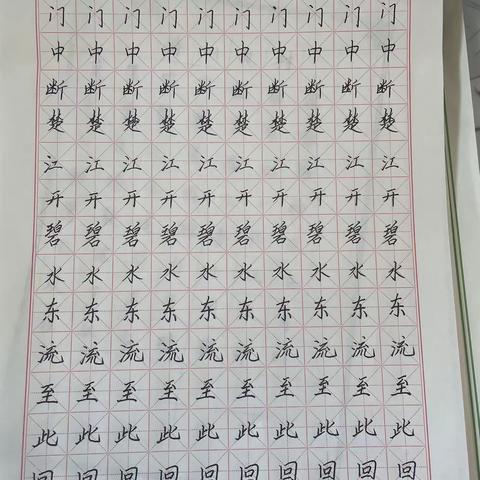 门门门门门门门门门门
中中中中中中中中中中
断断断断断断断断断断
楚楚楚楚楚楚楚楚楚楚
江江江江江江江江江江
开开开开开开开开开开
碧碧碧碧碧碧碧碧碧碧
水水水水水水水水水水
东东东东东东东东东东
流流流流流流流流流流
至至至至至至至至至至
此此此此此此此此此此
回回回回回回回回回回